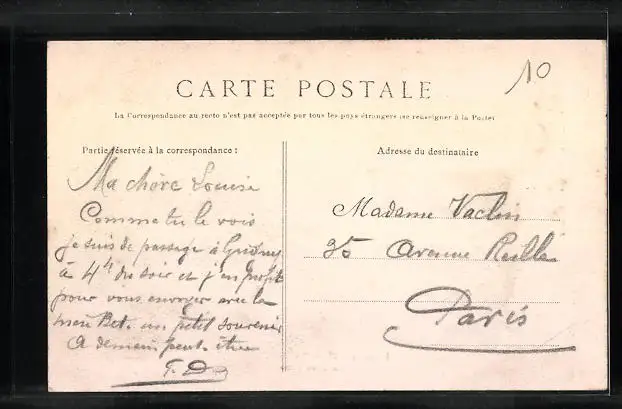 10
CARTE POSTALE
La Correspondance au recto n'est pas acceptée par tous les pays étrangers (se renseigner à la Poste)
Partie réservée à la correspondance :
Adresse du destinataire
Ma chère Louise
Comme tu le vois
je suis de passage à
à 4h du soir et j'en profite
pour vous envoyer avec la
un petit souvenir
A demain peut-être
Madame
Avenue Reille
Paris